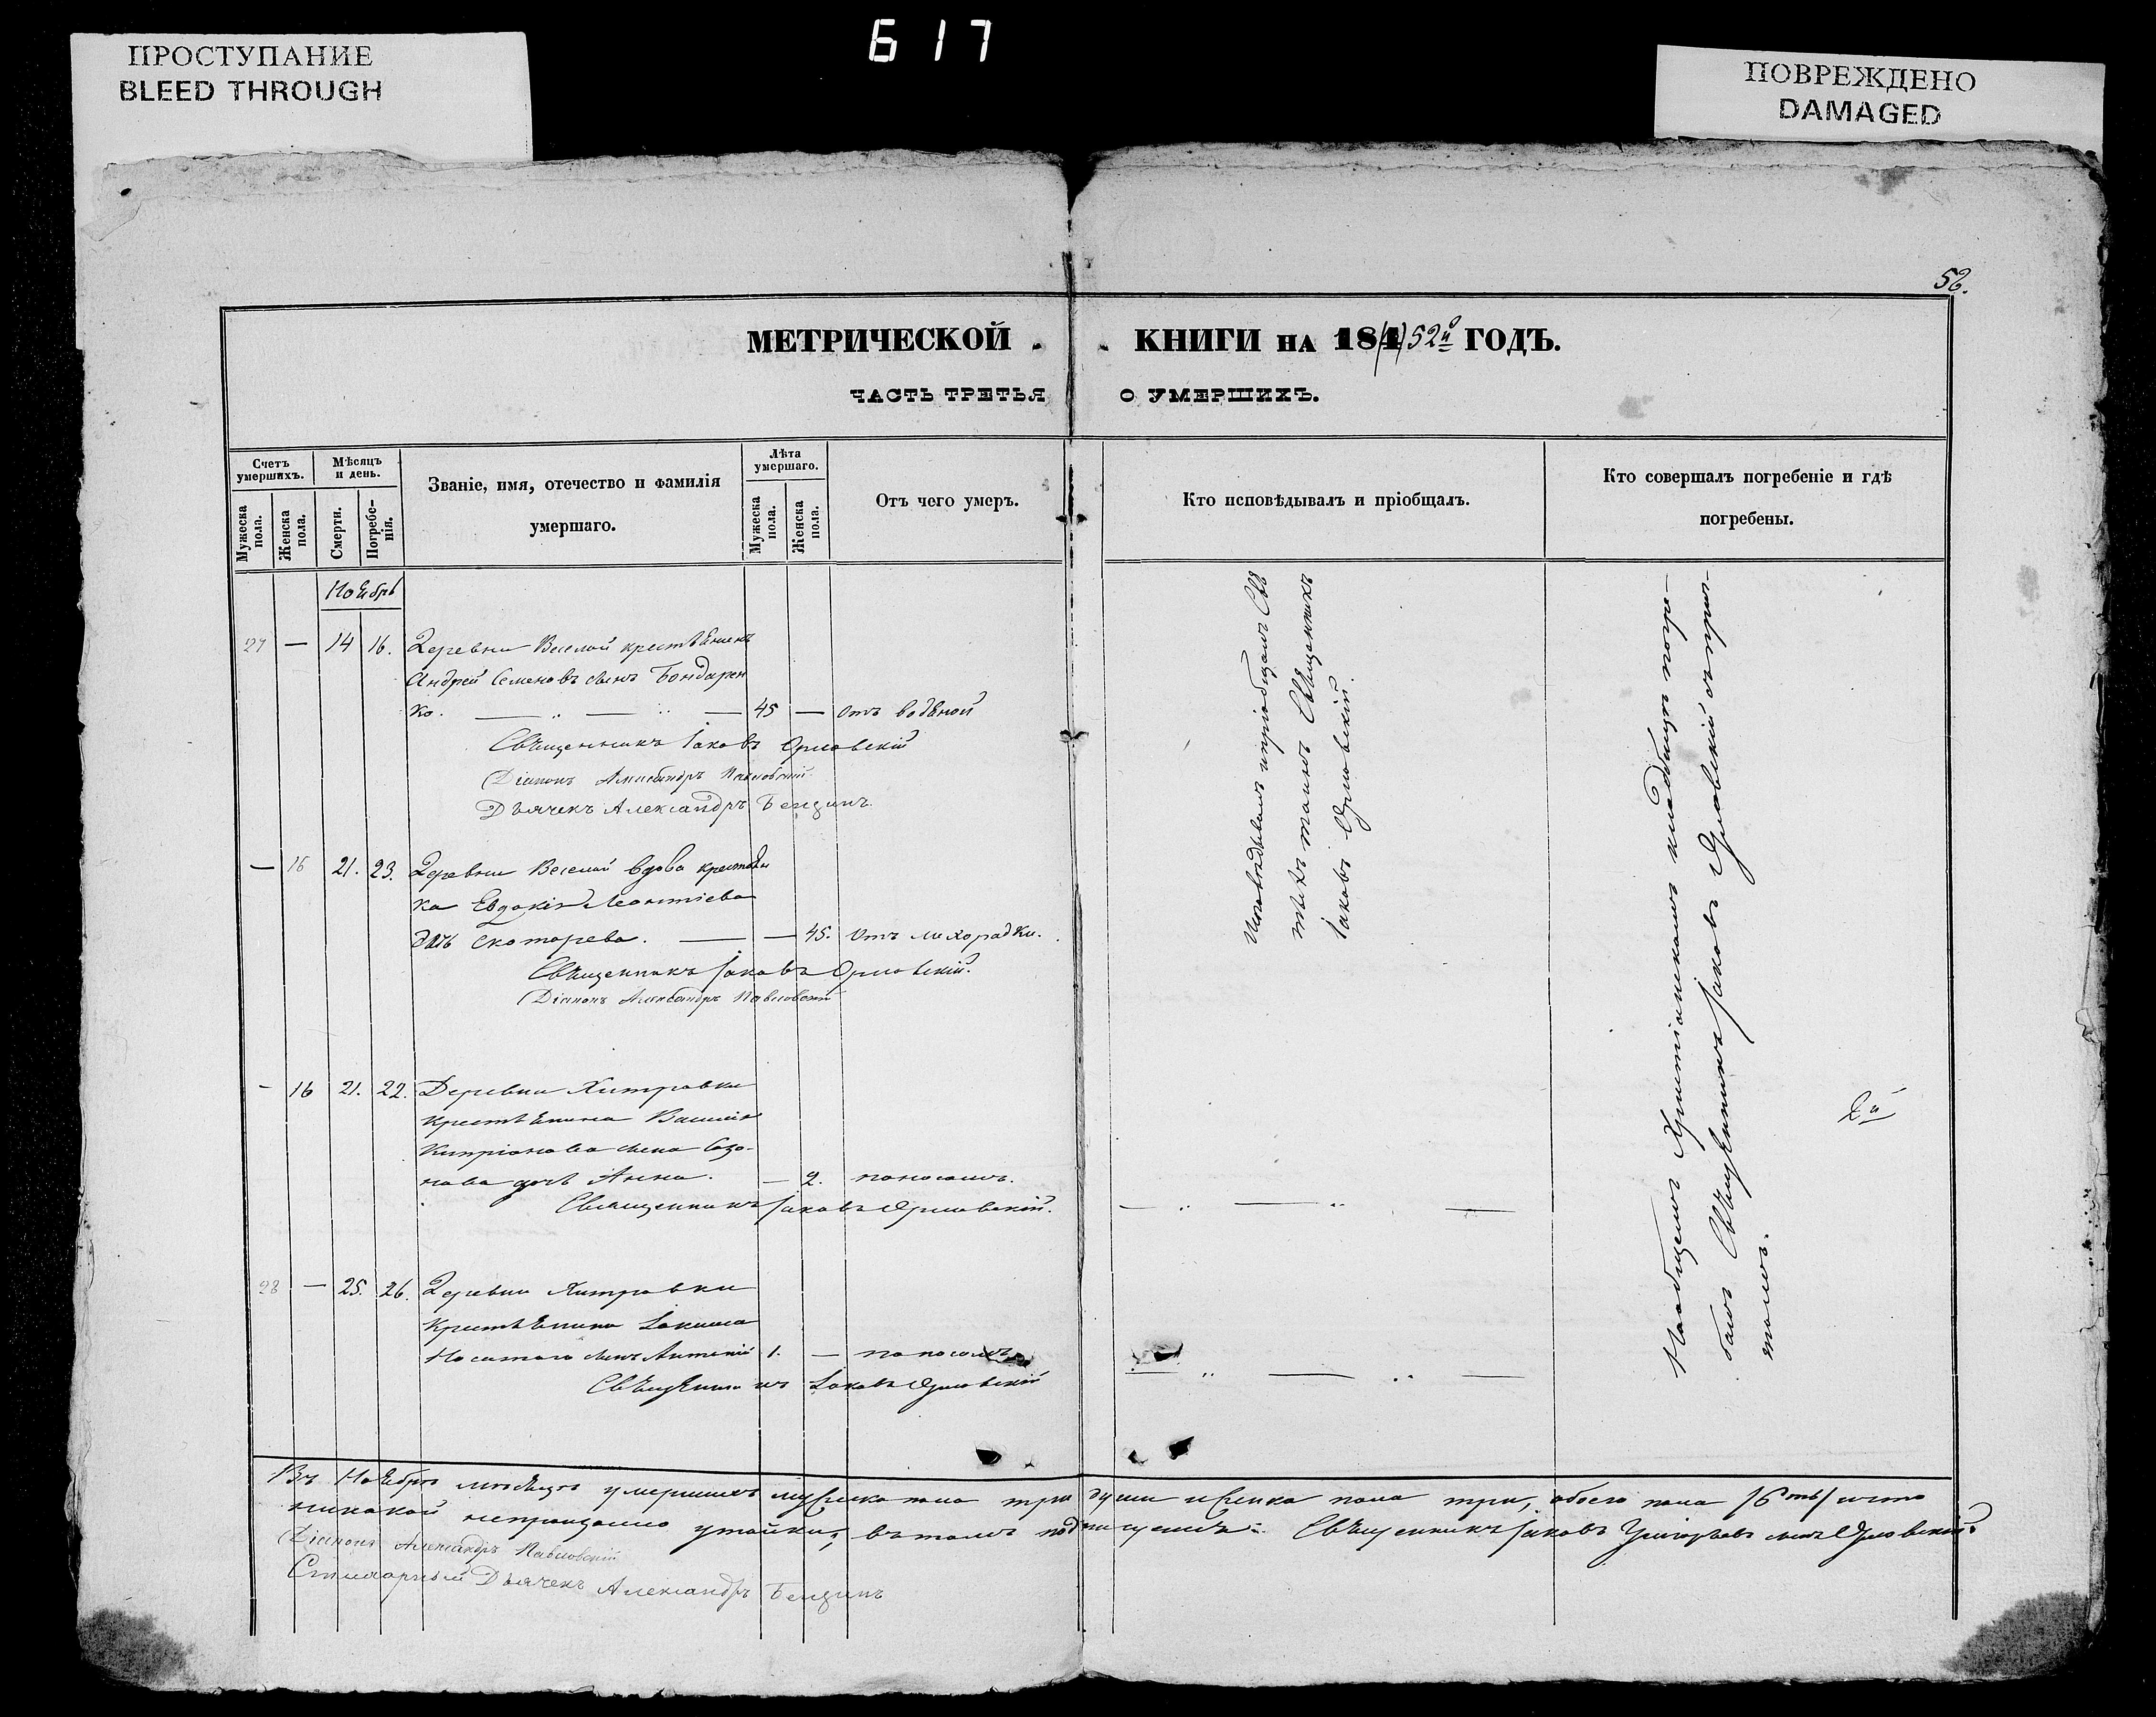 ПРОСТУПАНИЕ
BLEED THROUGH
617
ПОВРЕЖДЕНО
DAMAGED
52.
МЕТРИЧЕСКОЙ КНИГИ НА 184(1) 52й ГОДЪ.
ЧАСТЬ ТРЕТЬЯ О УМЕРШИХЪ.
Счетъ умершихъ.
Мужеска пола.
Женска пола.
Мѣсяцъ и день.
Смерти.
Погребенія.
Званіе, имя, отечество и фамилія
умершаго.
Лѣта умершаго.
Мужеска пола.
Женска пола.
Отъ чего умеръ.
Кто исповѣдывалъ и пріобщалъ.
Кто совершалъ погребеніе и гдѣ
погребены.
Ноябрь
27 — 14 16. Деревни Веселой крестьянинъ
Андрей Семеновъ сынъ Бондарен
ко. — — — 45 — Отъ водяной
Священникъ Іаковъ Орловскій
Діаконъ Александръ Павловскій
Дьячекъ Александръ Бендинъ
— 15 21. 23. Деревни Веселой вдова крестьян
ка Евдокія Леонтіева
дочь Скотарева. — — 45. Отъ лихорадки.
Священникъ Іаковъ Орловскій.
Діаконъ Александръ Павловскій
— 16 21. 22. Деревни Хитровки
крестьянина Василія
Кипріанова сына Созо-
нова дочь Анна. — 2. поносомъ.
Священникъ Іаковъ Орловскій.
28 — 25. 26. Деревни Хитровки
Крестьянина Іакима
Носитаго сынъ Антоній 1. — поносомъ
Священникъ Іаковъ Орловскій
Исповѣдывалъ и пріобщалъ Свя
тыхъ таинъ Священникъ
Іаковъ Орловскій.
На общемъ Христіанскомъ кладбищѣ погре-
балъ Священникъ Іаковъ Орловскій съ прич-
томъ.
2й
Въ Ноябрѣ мѣсяцѣ умершихъ мужеска пола три души и женска пола три, обоего пола /6ть/ и что
никакой не произошло утайки, въ томъ подпишемся: Священникъ Іаковъ Григорьевъ сынъ Орловскій.
Діаконъ Александръ Павловскій
Стихарный Дьячекъ Александръ Бендинъ